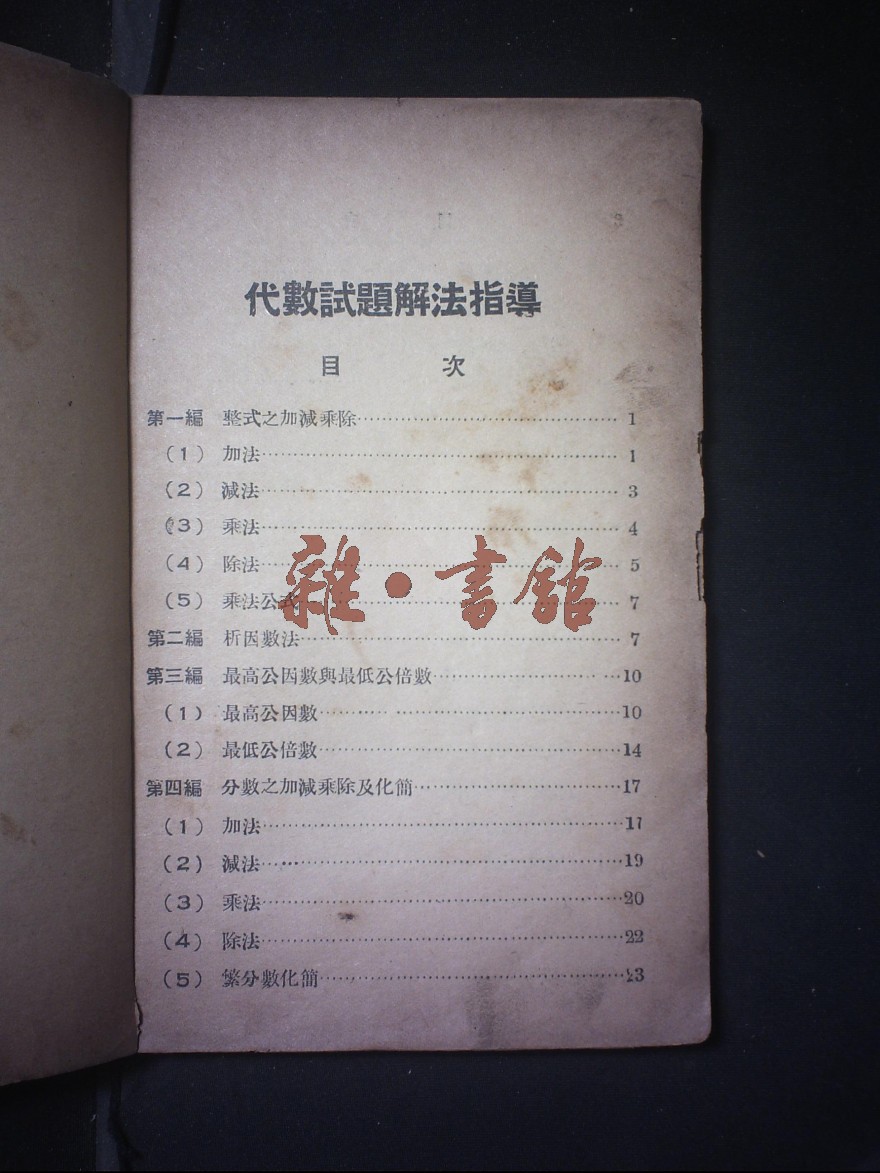 代數試題解法指導
目 次
第一編 整式之加減乘除……1
(1) 加法……1
(2) 減法……3
(3) 乘法……4
(4) 除法……5
(5) 乘法公式……7
第二編 析因數法……7
第三編 最高公因數與最低公倍數……10
(1) 最高公因數……10
(2) 最低公倍數……14
第四編 分數之加減乘除及化簡……17
(1) 加法……17
(2) 減法……19
(3) 乘法……20
(4) 除法……22
(5) 繁分數化簡……23
雜·書館